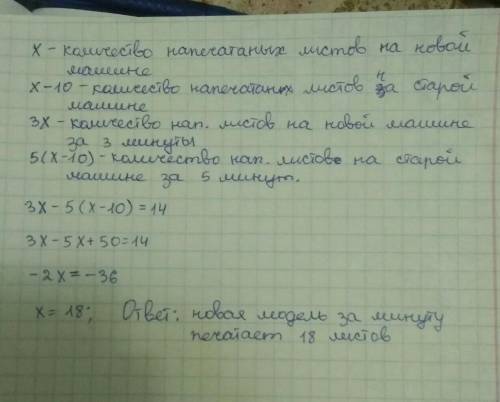 x - количество напечатаных листов на новой
машине
x-10 - количество напечатаных листов на старой
машине
3x - количество нап. листов на новой машине
за 3 минуты
5(x-10) - количество нап. листов на старой
машине за 5 минут.
3x-5(x-10)=14
3x-5x+50=14
-2x=-36
x=18; Ответ: новая модель за минуту
печатает 18 листов